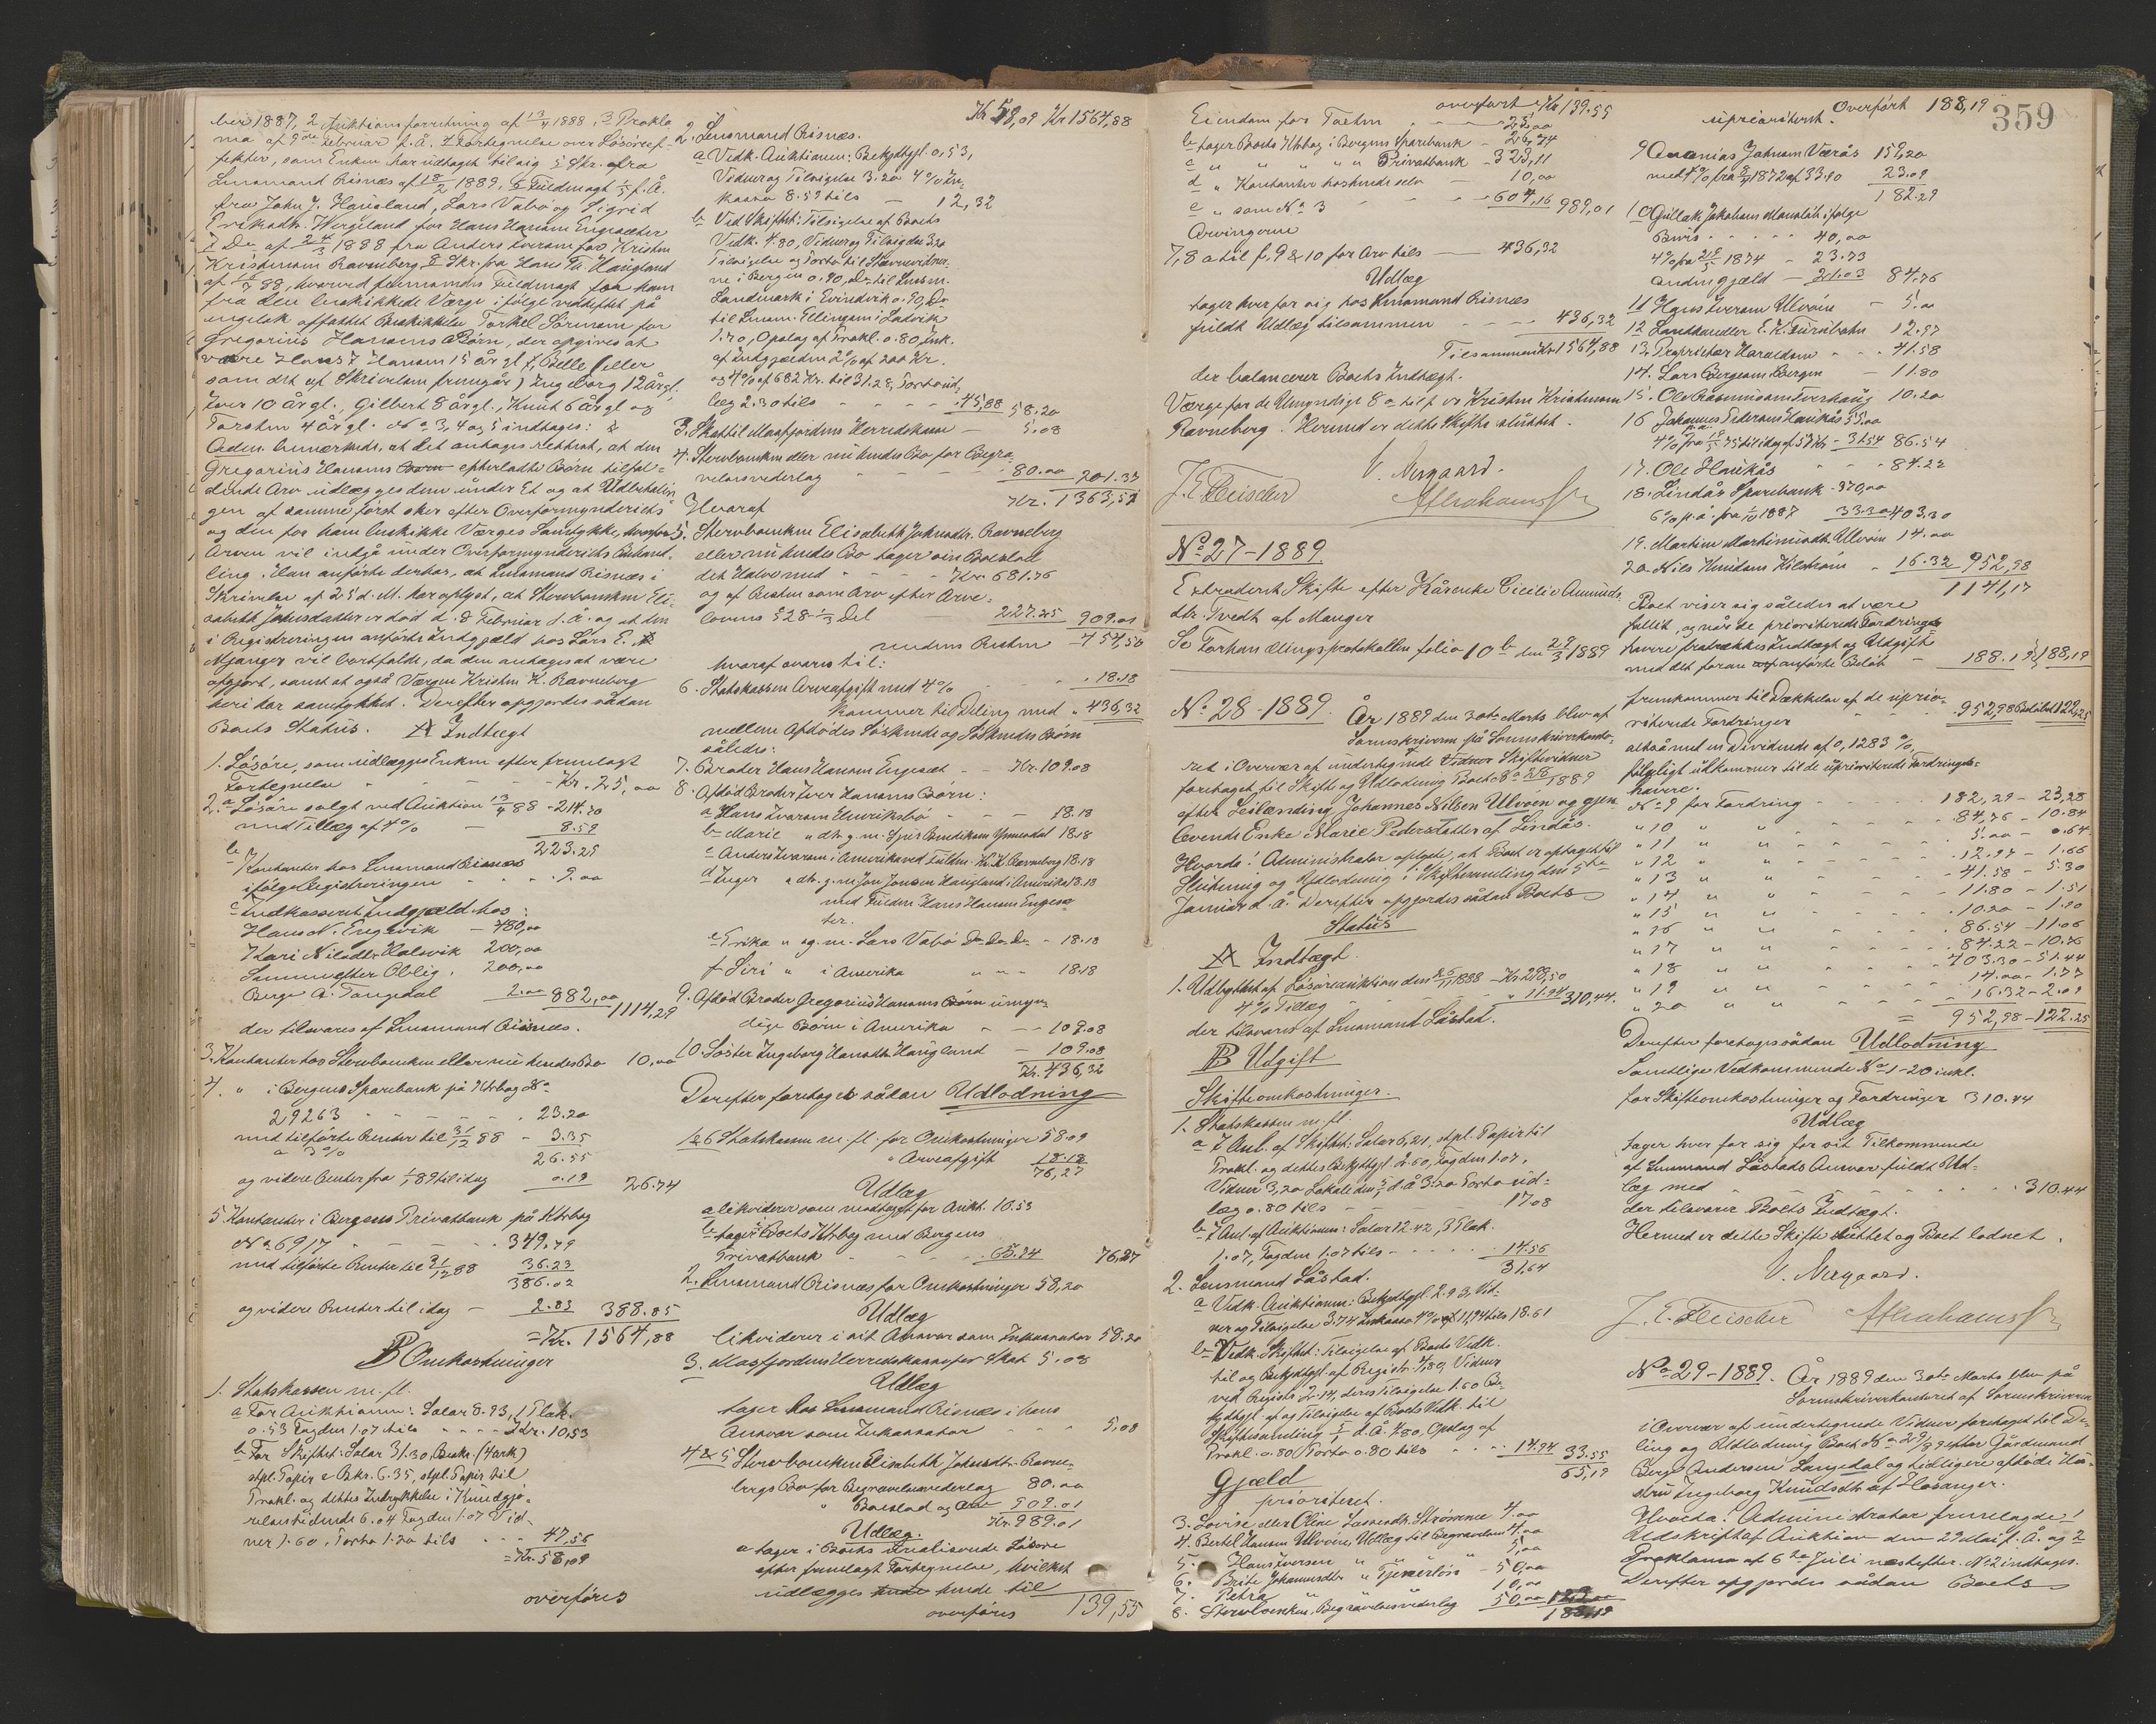 ber 1887, 2 Auktionsforretning af 13/4 1888, 3 Prokla
ma af 9de Februar f.Å. 4 Fortegnelse over Løsøreef-
fekter, som Enken har udtaget til sig 5 Skr. fra
Lensmand Risnæs af 18/2 1889, 6 Fuldmagt f.Å.
fra John J. Hausland, Lars Vabø og Sigrid
for Hans Hansen Engesæter
7 Do af 24/3 1888 fra Anders Iversen for Kristen
Kristensen Ravneberg 8 Skr. fra Hans Haugland
88, hvorved Fuldmagt for ham
fra den beskikkede Værge ifølge vedheftet på
engelsk affattet Beskikkelse Torkel Sörensen for
Gregorius Hansens Børn, der opgives at
være Hans Hansen 15 år gl., Belle (eller
som det af Skrivelsen fremgår) Ingeborg 12 årgl,
Iver 10 år gl., Gilbert 8 årgl., Knut 6 årgl og
Torsten 4 år gl. No 3, 4 og 5 indtages:
bemærkede, at det antages rettest, at den
Gregorius Hansens efterladte Børn tilfal-
dende Arv udlægges dem under Et og at Udbetalin
gen af samme først sker efter Overformynderiets
og den for ham beskikkede Værges Samtykke,
Arven vil indgå under Overformynderiets Behand-
ling. Han anførte derhos, at Lensmand Risnæs i
Skrivelse af 25 d.M. har oplyst, at Stervboenken Eli-
sabeth Johnsdatter er død d. 8 Februar d.Å. og at den
i Registreringen anførte Indgjæld hos Lars E.
Mjanger vil bortfalde, da den antages at være
opgjort, samt at også Værgen Kristen K. Ravneberg
heri har samtykket. Derefter opgjordes sådan
Boets Status. A Indtægt
1. Løsøre, som udlægges Enken efter fremlagt
Fortegnelse Kr. 25,00
2. a Løsøre solgt ved Auktion 13/4 88 - 214.70
med Tillæg af 4% - 8.59
223.29
b Kontanter hos Lensmand Risnæs
ifølge Registreringen 9.00
c Indkasseret Indgjæld hos:
Hans N. Engevik - 480,00
Kari Nilsdtr Halsvik 200,00
Samme efter Oblig. 200,00
Berge A. Tangedal 2.00 882,00
1114,29
der tilsvares af Lensmand Risnæs.
3. Kontanter hos Stervboenken eller nu hendes Bo 10,00
4. " i Bergens Sparebank på Ktrbog No
29263 23.20
med tilførte Renter til 31/12 88 - 3.35
a 3% 26.55
og videre Renter fra 1/1 89 til idag 0.19 26.74
5. Kontanter i Bergens Privatbank på Ktrbog
No 6917 349.79
med tilførte Renter til 31/12 88 36.23
386.02
og videre Renter til idag - 2.83 388.85
= Kr. 1564,88
B Omkostninger
1. Statskassen m.fl.
a For Auktionen: Salar 8.93, 1 Plak.
0.53 Fogden 1.07 tils Kr. 10,53
b For Skiftet: Salar 31.30,
stpl. Papir
Prokl. og dettes Indrykkelse i Kundgjø-
relsestidende 6.04 Fogden 1.07 Vid-
ner 1.60, Porto 1.20 tils 47,56
= Kr. 58,09
overføres
Kr 58,09 Kr 1564,88
2. Lensmand Risnæs.
a Vedk. Auktionen: Bekjdtgjl. 0,53,
Vidner og Tilsigelse 3.20 4% In-
kasso 8.59 tils - 12,32
b Ved Skiftet: Tilsigelse af Boets
Vedk. 4.80, Vidner og Tilsig
Tilsigelse og Porto til Stevnevidner-
ne i Bergen 0.90, Do til Lensm.
Landmark i Evindvik 0.90, Do
til Lensm. Ellingsen i Ladvik
1.70, Opslag af Prokl. 0.80, Ink.
af Indgjælden 2% af 200 Kr.
og 4% af 682 Kr. til 31.28, Portoud-
læg 2.30 tils 45,88 58,20
3. Skat til Masfjordens Herredskasse - 5.08
4. Stervboenken eller nu hendes Bo for Begra-
velsesvederlag 80.00 201.37
Kr. 1363,51
Heraf
5. Stervboenken Elisabeth Johnsdtr. Ravneberg
eller nu hendes Bo tager sin Boeslod
det Halve med Kr. 681.76
og af Resten som Arv efter Arve-
lovens §28 1/3 Del 227.25 909.01
medens Resten 454,50
hvoraf svares til:
6. Statskassen Arveafgift med 4% 18.18
kommer til Deling med 436,32
mellem Afdødes Søskende og Søskendes Børn
således:
7. Broder Hans Hansen Engesæt Kr. 109.08
8. Afdød Broder Iver Hansens Børn:
a Hans Iversen Henriksbø 18.18
b Marie " dtr. g.m. Sjur Bendiksen Ynnesdal 18.18
c Anders Iversen i Amerika ved Fuldm. Kr. K. Ravneberg 18.18
d Inger " dtr. g.m. Jon Jonsen Haugland i Amerika 18.18
ved Fuldm. Hans Hansen Engesæ
ter.
e Erika " og.m. Lars Vabø Do Do Do - 18.18
f Siri " i Amerika " " " 18.18
9. Afdød Broder Gregorius Hansens Børn umyn-
dige Børn i Amerika 109.08
10. Søster Ingeborg Hansdtr Haugland - 109.08
Kr. 436,32
Derefter foretoges sådan Udlodning
1 & 6 Statskassen m.fl. for Omkostninger 58.09
" Arveafgift 18.18
76,27
Udlæg
a likviderer som modtaget for Aukt. 10.53
b tager i Boets Ktrbog med Bergens
Privatbank 65.74 76,27
2. Lensmand Risnæs for Omkostninger 58,20
Udlæg
likviderer i sit Ansvar som Inkassator 58.20
3. Masfjordens Herredskasse for Skat 5.08
Udlæg
tager hos Lensmand Risnæs i hans
Ansvar som Inkassator 5,08
4 & 5 Stervboenken Elisabeth Johnsdtr. Ravne-
bergs Bo for Begravelsesvederlag 80.00
" Boeslod og Arv 909.01
Kr. 989.01
Udlæg.
a tager i Boets urealiserede Løsøre
efter fremlagt Fortegnelse, hvilket
udlægges hende til
overføres 139,55
359
overført Kr 139.55
Eiendom for Taxten 25,00
b tager Boets Ktrbog i Bergens Sparebank - 26,74
c " " " " " Privatbank - 323,11
d " Kontanter hos hende selv - 10,00
e " som No 3 604,16 989,01
Arvingerne
7, 8 a til f, 9 & 10 for Arv tils - 436,32
Udlæg
tager hver for sig hos Lensmand Risnæs
fuldt Udlæg tilsammen 436,32
Tilsammen Kr 1564,88
der balancerer Boets Indtægt.
Værge for de Umyndige 8 er Kristen Kristensen
Ravneberg. Hermed er dette Skifte sluttet.
V. Nergaard.
J. E. Fleischer
No 27-1889.
Extraderet Skifte efter Cicilie Amunds-
dtr. Tvedt af Manger
Se Forhandlingsprotokollen folio 10 b den 29/3 1889
No 28-1889. År 1889 den 30te Marts blev af
Sorenskriveren på Sorenskriverkonto-
ret i Overvær af undertegnede Skiftevidner
foretaget til Skifte og Udlodning Boet No 28/1889
efter Leilænding Johannes Nilsen Ulvøen og gjen-
levende Enke Marie Pedersdatter af Lindås.
Hvorda: Administrator oplyste, at Boet er optaget til
Slutning og Udlodning i Skiftesamling den 5te
Januar d.Å. Derefter opgjordes sådan Boets
Status
A Indtægt.
1. Udbyttet af Løsøreauktion den 1888 - Kr 298,50
4% Tillæg " 11.94 310,44.
der tilsvares af Lensmand Låstad.
B Udgift
Skifteomkostninger.
1. Statskassen m.fl.
a I Anl. af Skiftet: Salar 6,21, stpl. Papir til
Prokl. og dettes Bekjdtgjl. 2.60, Fogden 1.07,
Vidner 3,20 Lokale den d.å 3.20 Porto ud-
læg 0.80 tils 17.08
b I Anl. af Auktionen: Salar 12.42, 3 Plak.
1.07, Fogden 1.07 tils 14.56
31,64
2. Lensmand Låstad.
a Vedk. Auktionen: Bekjdtgjl. 2.93, Vid-
ner og Tilsigelse 3.74 Inkasso 4% 11,94 tils 18.61
b Vedk. Skiftet: Tilsigelse af Boets Vedk.
til og Bekjdtgjl. af Registr. 4,80, Vidner
ved Registr. 2.14, deres Tilsigelse 1.60 Be-
kjdtgjl. af og Tilsigelse af Boets Vedk. til
Skiftesamling d.Å. 4.80, Opslag af
Prokl. 0.80 Porto 0.80 tils 14.94 33.55
65,19
Gjæld
prioriteret.
3. Lovise eller Oline Strømme 4.00
4. Bertel Hansen Ulvøen, Udlæg til Begravelsen 4.00
5. Hans Iversen " " " 5,00
6. Brite Johannesdtr. " Tjenerløn - 50,00
7. Petra " " 10,00
8. Stervboenken, Begravelsesvederlag 50,00 123,00
188,19
Overført 188,19
uprioriteret.
9 Ananias Johnsen Værås 159,20
med 4% fra 1872 af 33.90 23.09
182.29
10 Gullak Jakobsens ifølge
Bevis 40,00
4% fra 1874 - 23.73
anden gjæld - 21.03 84.76
11 Hans Iversen Ulvøen - 5.00
12. Landhandler E. K. 12.97
13. Proprietær Haraldsen 41.58
14. Lars Bergesen, Bergen - 11.80
15. Ole Rasmussen Tverhaug 10.20
16 Johannes Pedersen Haukås 55.00
4% fra 75 til idag af 57 Kr - 31.54 86.54
17. Ole Haukås 84.22
18. Lindås Sparebank - 370,00
6% p.å. fra 1887 33.30 403.30
19. Martin Martinusdtr Ulvøen 14.00
20. Nils Knudsen 16.32 952,98
1141,17
Boet viser sig således at være
fallit, og når de prioriterede Fordrings-
havere fratrækkes Indtægt og Udgift
med det foran anførte Beløb 188.19 188,19
fremkommer til Dækkelse af de uprio-
riterede Fordringer 952,98 Beløbet 122,25
altså med en Dividende af 0,1283 %,
følgeligt udkommer til de uprioriterede Fordrings-
havere.
No 9 for Fordring 182,29 - 23,28
" 10 " " 84,76 - 10.84
" 11 " " 5.00 - 0.64
" 12 " " 12.97 - 1.66
" 13 " " 41.58 - 5.30
" 14 " " 11.80 - 1.51
" 15 " " 10.20 - 1.30
" 16 " " 86.54 - 11.06
" 17 " " 84.22 - 10.76
" 18 " " 403.30 - 51.44
" 19 " " 14.00 - 1.77
" 20 " " 16.32 - 2.09
= 952,98 - 122.25
Derefter foretoges sådan Udlodning
Samtlige Vedkommende No 1-20 inkl.
for Skifteomkostninger og Fordringer 310.44
Udlæg
tager hver for sig for sit Tilkommende
af Lensmand Låstads Ansvar fuldt Ud-
læg med 310.44
der tilsvarer Boets Indtægt.
Hermed er dette Skifte sluttet og Boet lodnet.
V. Nergaard.
J. E. Fleischer
No 29-1889. År 1889 den 30te Marts blev på
Sorenskriverkontoret af Sorenskriveren
i Overvær af undertegnede Vidner foretaget til De-
ling og Udlodning Boet No 29/89 efter Gårdmand
Berge Andersen Langedal og tidligere afdøde Hu-
stru Ingeborg Knudsdtr. af Hosanger.
Hvorda: Administrator fremlagde 1
Udskrift af Auktion den 29 Mai f.Å. og 2
Proklama af 6te Juli næstefter. No 2 indtages.
Derefter opgjordes sådan Boets